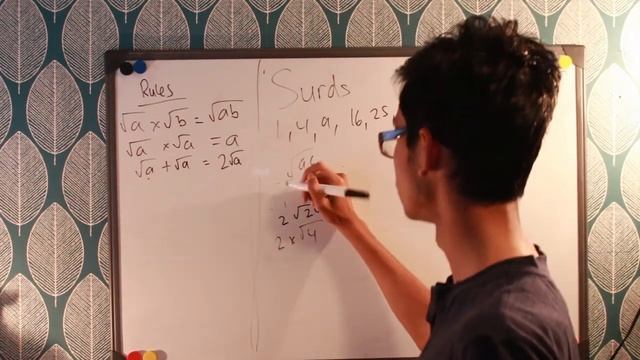 Rules
√a × √b = √ab
√a × √a = a
√a + √a = 2√a
Surds
1, 4, 9, 16, 25
2 √2
2 × √4